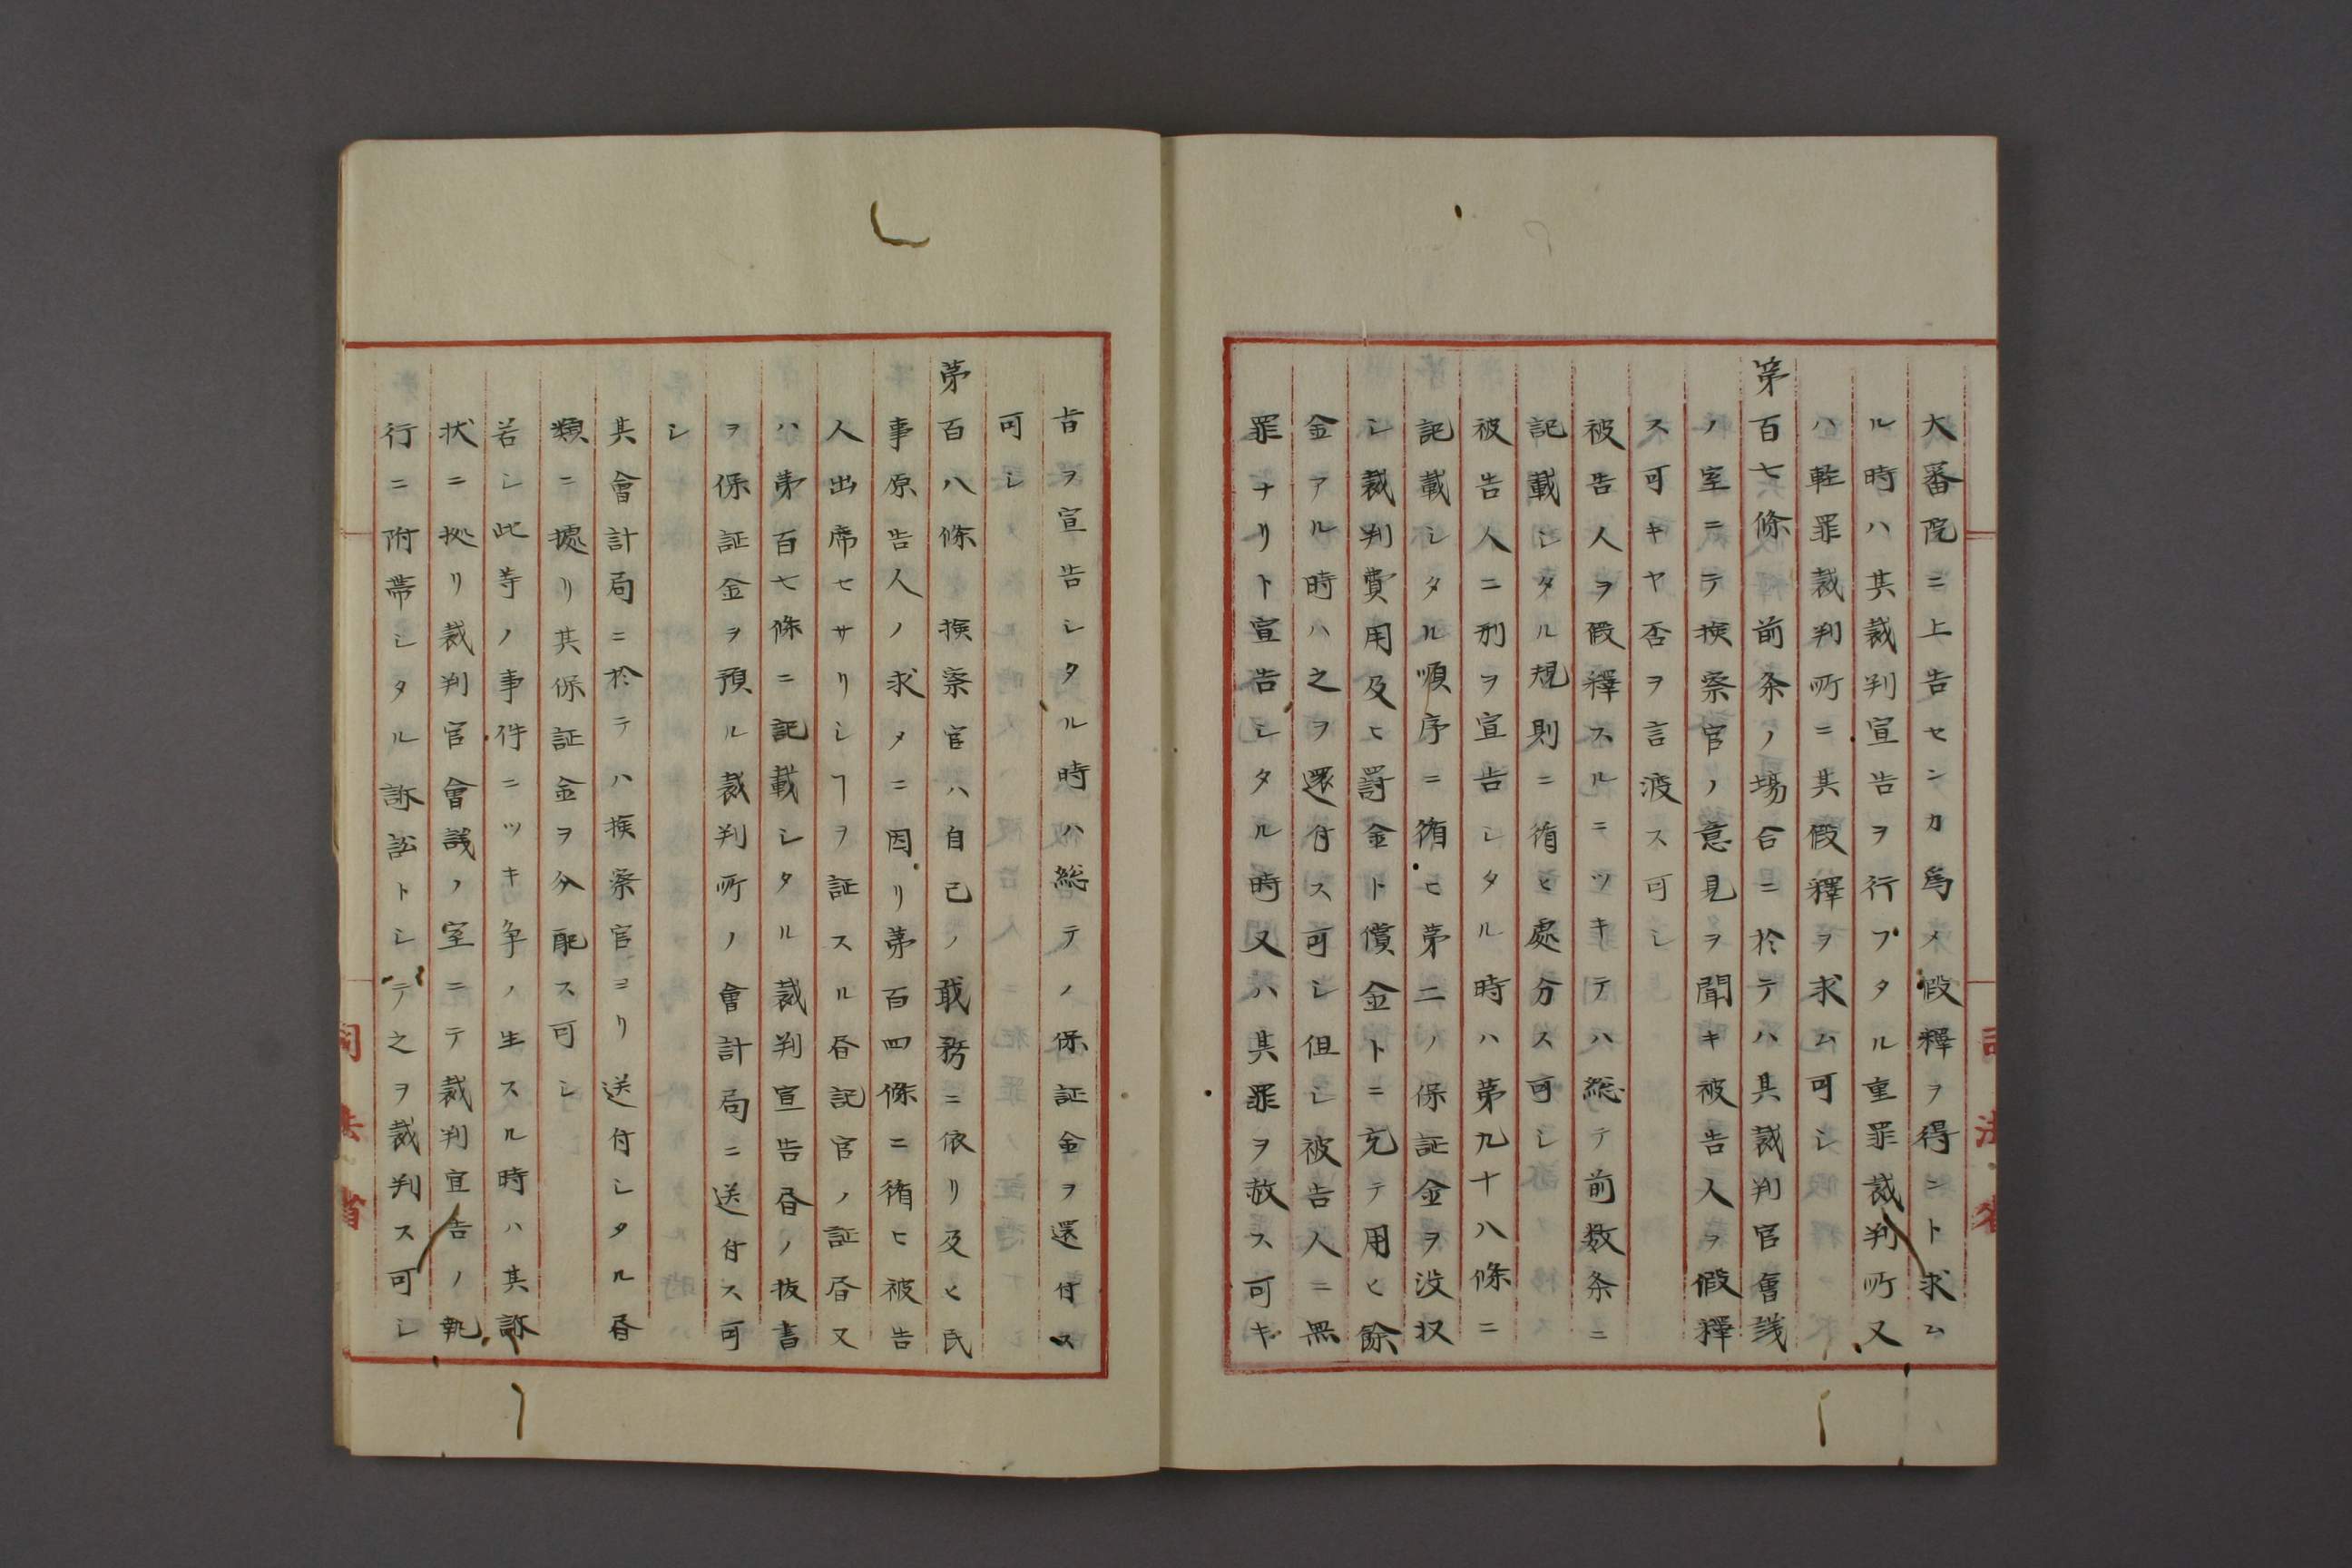 大審院ニ上告センカ為メ假釋ヲ得ント求ム
ル時ハ其裁判宣告ヲ行フタル重罪裁判所又
ハ軽罪裁判所ニ其假釋ヲ求ム可シ
第百七條 前条ノ場合ニ於テハ其裁判官會議
ノ室ニテ撿察官ノ意見ヲ聞キ被告人ヲ假釋
ス可キヤ否ヲ言渡ス可シ
被告人ヲ假釋スルニツキテハ総テ前数条ニ
記載シタル規則ニ循ヒ處分ス可シ
被告人ニ刑ヲ宣告シタル時ハ第九十八條ニ
記載シタル順序ニ循ヒ第二ノ保証金ヲ没収
シ裁判費用及ヒ罰金ト償金トニ充テ用ヒ餘
金アル時ハ之ヲ還付ス可シ但シ被告人ニ無
罪ナリト宣告シタル時又ハ其罪ヲ赦ス可キ
旨ヲ宣告シタル時ハ総テノ保証金ヲ還付ス
可シ
第百八條 撿察官ハ自己ノ職務ニ依リ及ヒ民
事原告人ノ求メニ因リ第百四條ニ循ヒ被告
人出席セサリシヿヲ証スル書記官ノ証書又
ハ第百七條ニ記載シタル裁判宣告書ノ抜書
ヲ保証金ヲ預ル裁判所ノ會計局ニ送付ス可
シ
其會計局ニ於テハ撿察官ヨリ送付シタル書
類ニ據リ其保証金ヲ分配ス可シ
若シ此等ノ事件ニツキ争ノ生スル時ハ其訴
状ニ拠リ裁判官會議ノ室ニテ裁判宣告ノ執
行ニ附帯シタル訴訟トシテ之ヲ裁判ス可シ
司法省